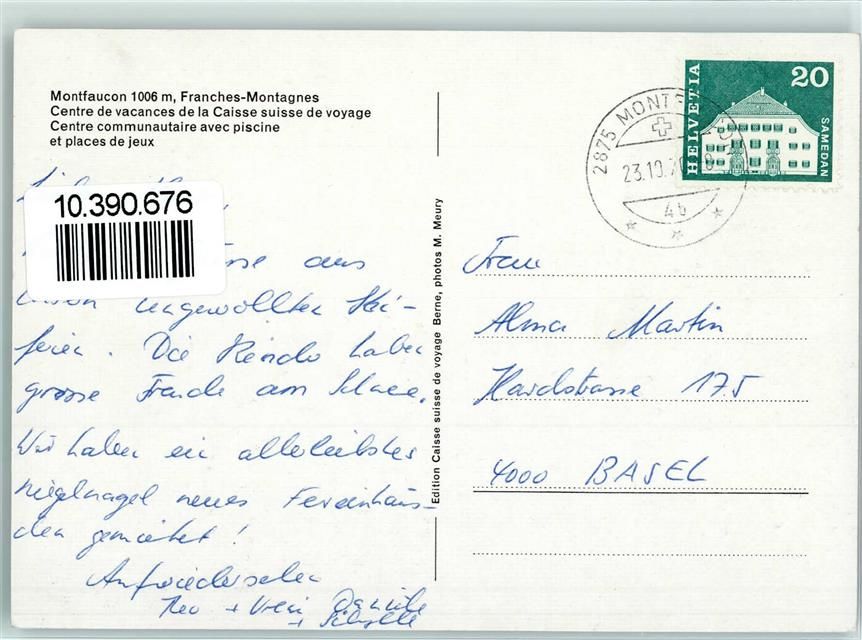 Montfaucon 1006 m, Franches-Montagnes
Centre de vacances de la Caisse suisse de voyage
Centre communautaire avec piscine
et places de jeux
10.390.676
aus
ungewollten Ski-
ferien. Die Kinder haben
grosse Freude am Schnee.
Wir haben ein allerliebstes
nigelnagel neues Ferienhäus-
chen gemietet!
Aufwiedersehen
+ Vreni Daniele
+ Sibylle
Edition Caisse suisse de voyage Berne, photos M. Meury
HELVETIA
20
SAMEDAN
2875 MONTF
23.10.
4b
Frau
Alma Martin
Hardstrasse 175
4000 BASEL